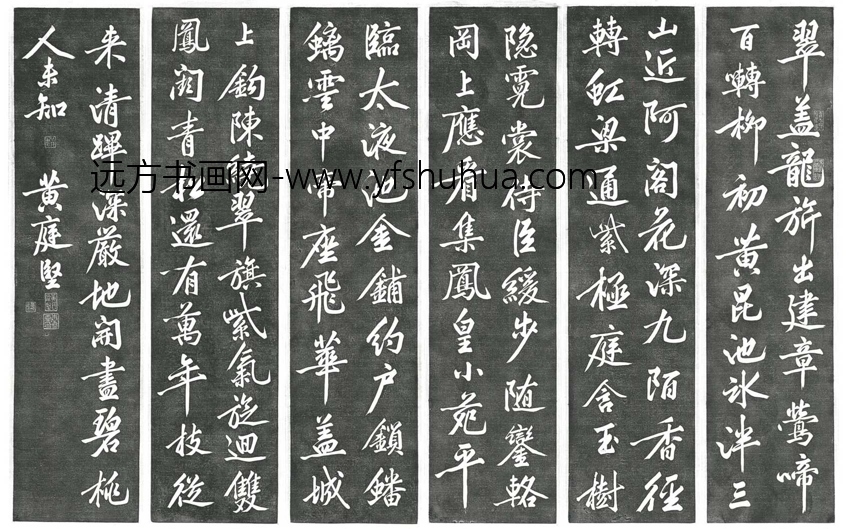 翠盖龍旂出建章鶯啼
百囀柳初黄昆池氷泮三
山近阿閣花深九陌香徑
轉虹梁通紫極庭含玉樹
隐霓裳侍臣緩步随鑾輅
岡上應看集鳳皇小苑平
臨太液池金鋪約户鎖蟠
螭雲中帝座飛華盖城
上鈎陳繞翠旗紫氣旋迴雙
鳳闕青松還有萬年枝從
来清蹕深嚴地開盡碧桃
人未知 黄庭堅
远方书画网-www.yfshuhua.com